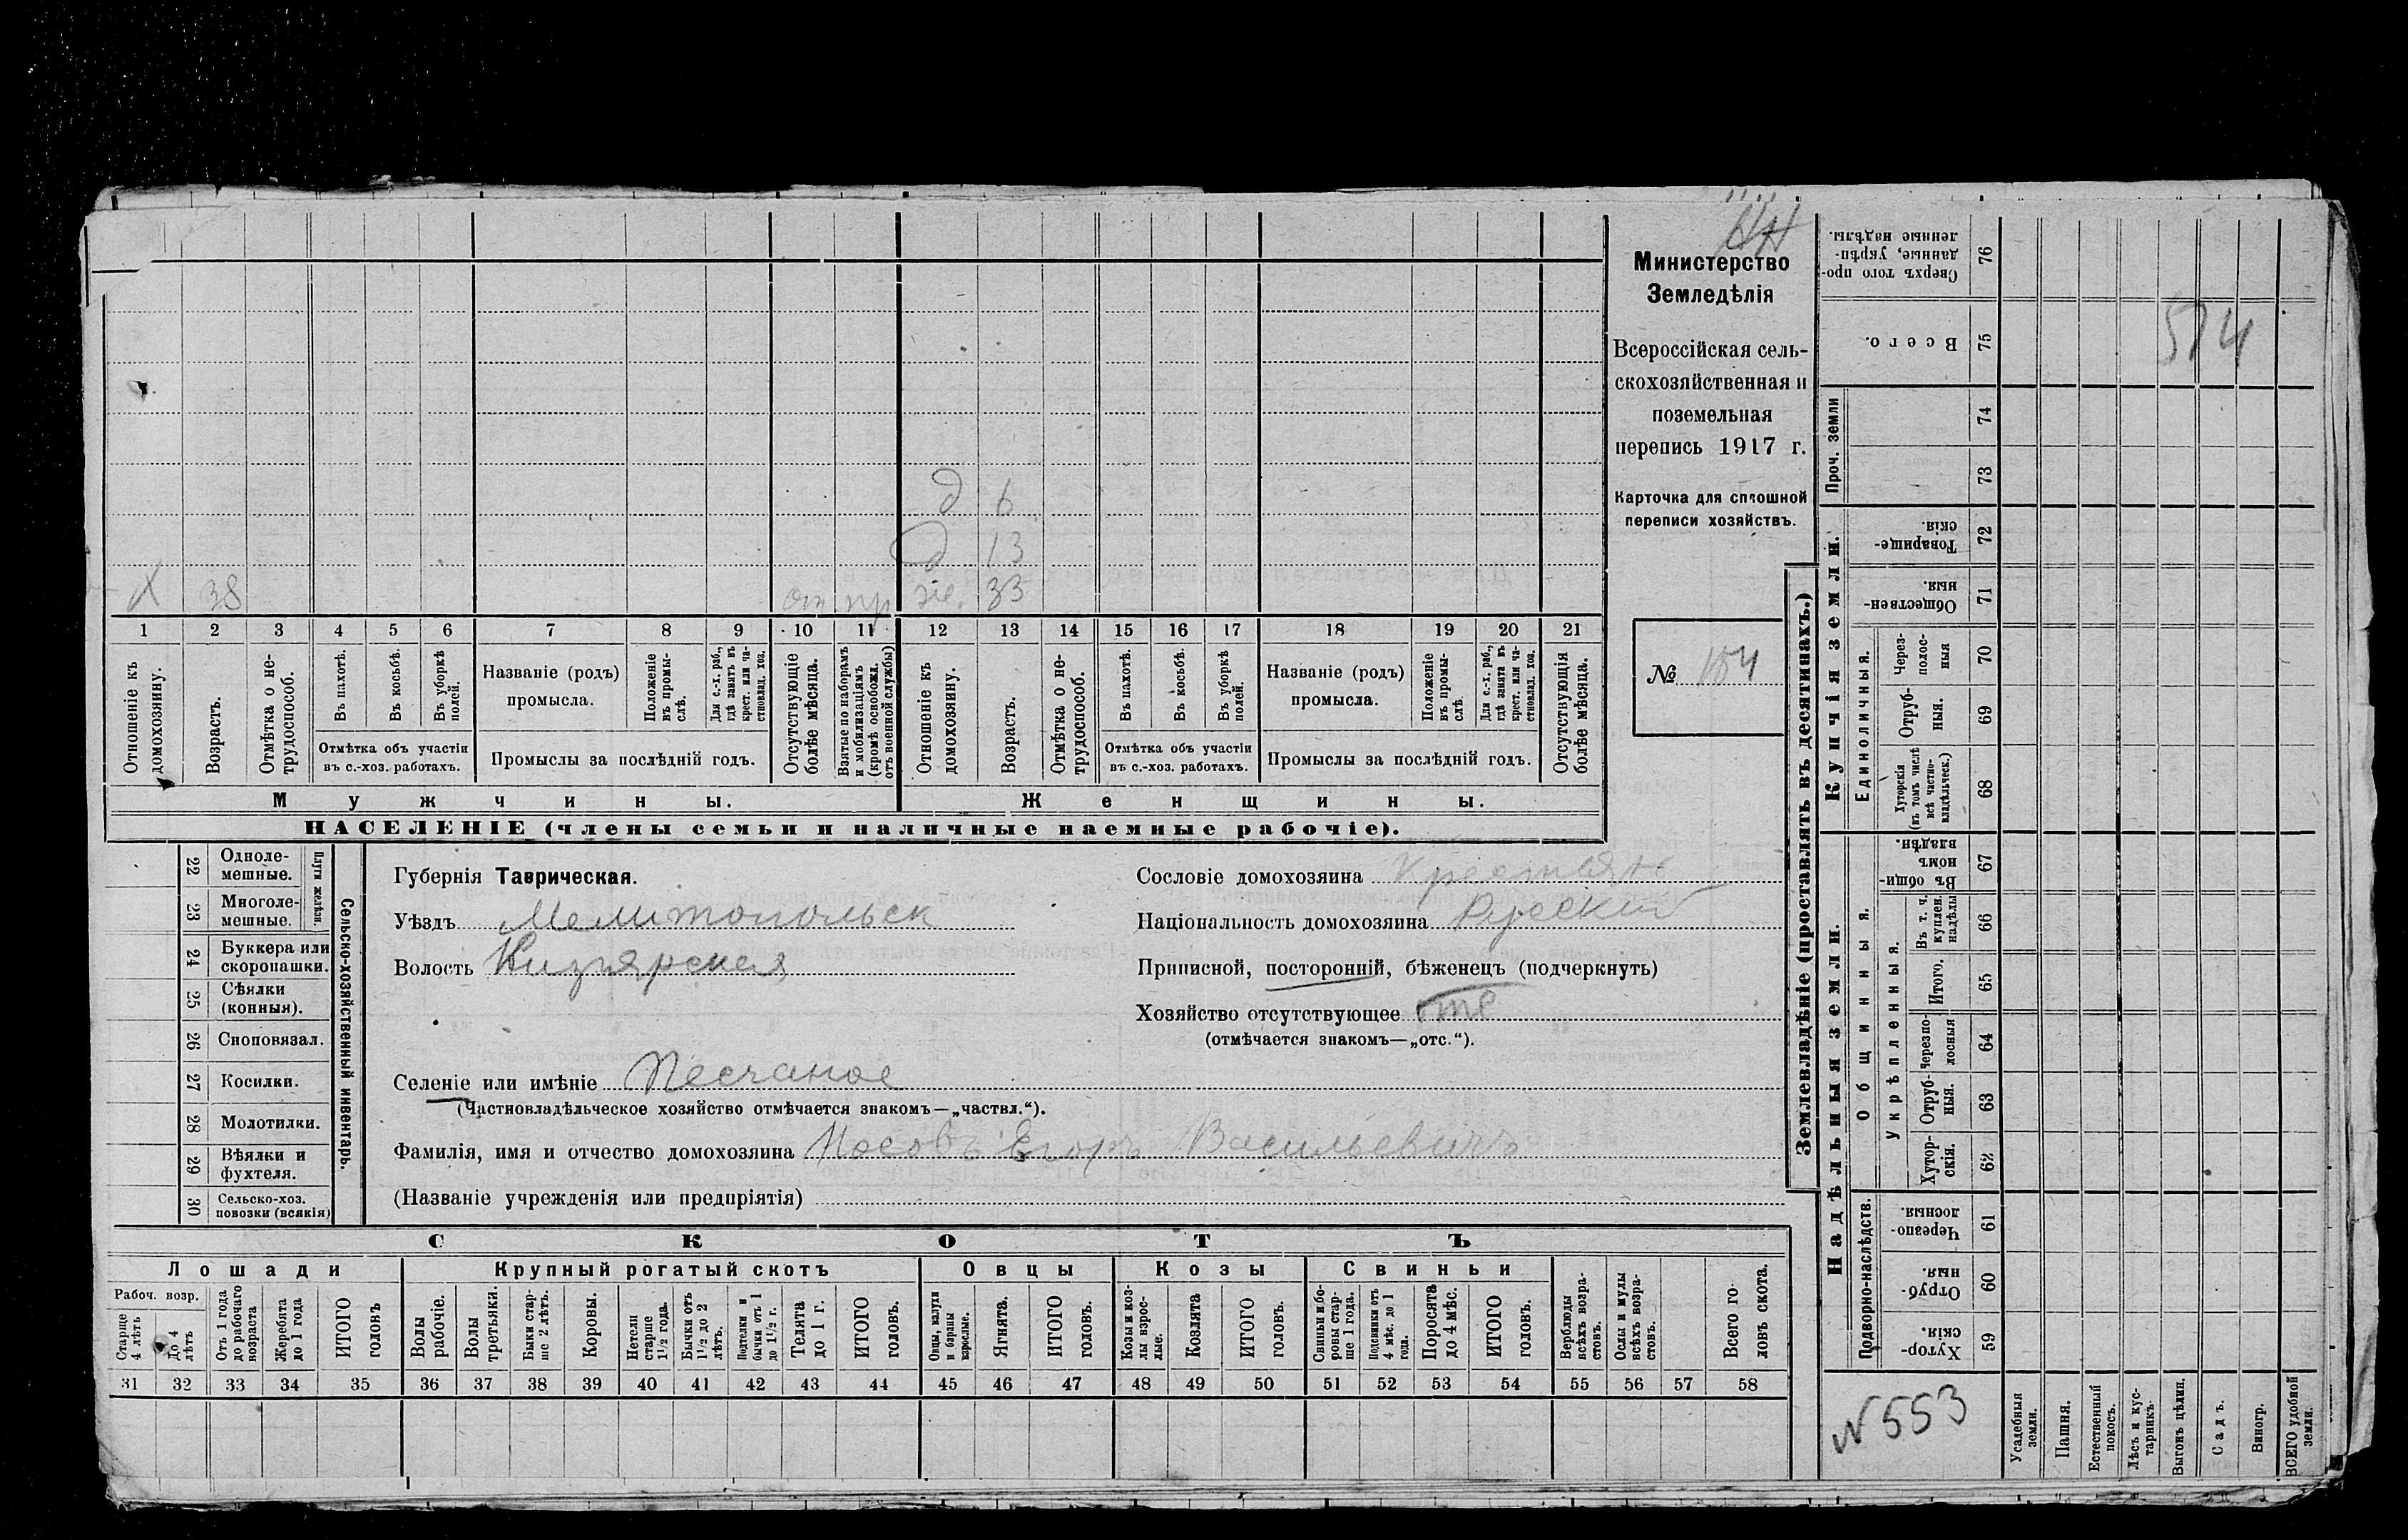 НН
Министерство
Земледѣлія
Всероссійская сель-
скохозяйственная и
поземельная
перепись 1917 г.
Карточка для сплошной
переписи хозяйствъ.
№ 184
д 6
д 13
х 38 от пр же. 33
1 2 3 4 5 6 7 8 9 10 11 12 13 14 15 16 17 18 19 20 21
Отношеніе къ домохозяину.
Возрастъ.
Отмѣтка о не-трудоспособ.
Въ пахотѣ.
Въ косьбѣ.
Въ уборкѣ полей.
Отмѣтка объ участіи
въ с.-хоз. работахъ.
Названіе (родъ)
промысла.
Положеніе въ промы-слѣ.
Для с.-х. раб., гдѣ занятъ въ крест. или ча-стновлад. хоз.
Промыслы за послѣдній годъ.
Отсутствующіе болѣе мѣсяца.
Взятые по наборамъ и мобилизаціямъ (кромѣ освобожд. отъ военной службы)
Отношеніе къ домохозяину.
Возрастъ.
Отмѣтка о не-трудоспособ.
Въ пахотѣ.
Въ косьбѣ.
Въ уборкѣ полей.
Отмѣтка объ участіи
въ с.-хоз. работахъ.
Названіе (родъ)
промысла.
Положеніе въ промы-слѣ.
Для с.-х. раб., гдѣ занята въ крест. или ча-стновлад. хоз.
Промыслы за послѣдній годъ.
Отсутствующія болѣе мѣсяца.
Мужчины. Женщины.
НАСЕЛЕНІЕ (члены семьи и наличные наемные рабочіе).
22 Одноле-мешные.
23 Многоле-мешные.
Плуги желѣзн.
24 Буккера или скоропашки.
25 Сѣялки (конныя).
26 Сноповязал.
27 Косилки.
28 Молотилки.
29 Вѣялки и фухтеля.
30 Сельско-хоз. повозки (всякія)
Сельско-хозяйственный инвентарь.
Губернія Таврическая.
Уѣздъ Мелитопольск
Волость Кизіярская
Сословіе домохозяина крестьян
Національность домохозяина Русскій
Приписной, посторонній, бѣженецъ (подчеркнуть)
Хозяйство отсутствующее отс
(отмѣчается знакомъ—„отс.“).
Селеніе или имѣніе Песчаное
(Частновладѣльческое хозяйство отмѣчается знакомъ—„частвл.“).
Фамилія, имя и отчество домохозяина Носовъ Егоръ Васильевичъ
(Названіе учрежденія или предпріятія)
СКОТЪ
Лошади Крупный рогатый скотъ Овцы Козы Свиньи
Рабоч. возр.
Старше 4 лѣтъ
До 4 лѣтъ
Отъ 1 года до рабочаго возраста
Жеребята до 1 года
ИТОГО головъ
Волы рабочіе.
Волы третьяки.
Быки стар-ше 2 лѣтъ.
Коровы.
Нетели старше 1½ года.
Бычки отъ 1½ до 2 лѣтъ.
Подтелки и бычки отъ 1 до 1½ г.
Телята до 1 г.
ИТОГО головъ.
Овцы, валухи и бараны взрослые.
Ягнята.
ИТОГО головъ.
Козы и коз-лы взрос-лые.
Козлята
ИТОГО головъ.
Свиньи и бо-ровы стар-ше 1 года.
Подсвинки отъ 4 мѣс. до 1 года.
Поросята до 4 мѣс.
ИТОГО головъ.
Верблюды всѣхъ возра-стовъ.
Ослы и мулы всѣхъ возра-стовъ.
Всего го-ловъ скота.
31 32 33 34 35 36 37 38 39 40 41 42 43 44 45 46 47 48 49 50 51 52 53 54 55 56 57 58
Землевладѣніе (проставлять въ десятинахъ.)
Надѣльныя земли. Купчія земли.
Подворно-наслѣдств.
Общинныя.
Укрѣпленныя.
Единоличныя.
Проч. земли
76 Сверхъ того про-данные, укрѣп-ленные надѣлы.
75 Всего.
74
73
72 Товарище-скія.
71 Обществен-ныя.
70 Через-полос-ныя
69 Отруб-ныя.
68 Хуторскія (въ томъ числѣ всѣ частно-владѣльческ.)
67 Въ общи-номъ владѣн.
66 Въ т. ч. куплен. надѣлы
65 Итого.
64 Черезпо-лосныя
63 Отруб-ныя.
62 Хутор-скія.
61 Черезпо-лосныя.
60 Отруб-ныя.
59 Хутор-скія.
574
N 553
Усадебныя земли.
Пашня.
Естественный покосъ.
Лѣсъ и кус-тарникъ.
Выгонъ цѣлин.
Садъ.
Виногр.
ВСЕГО удобной земли.